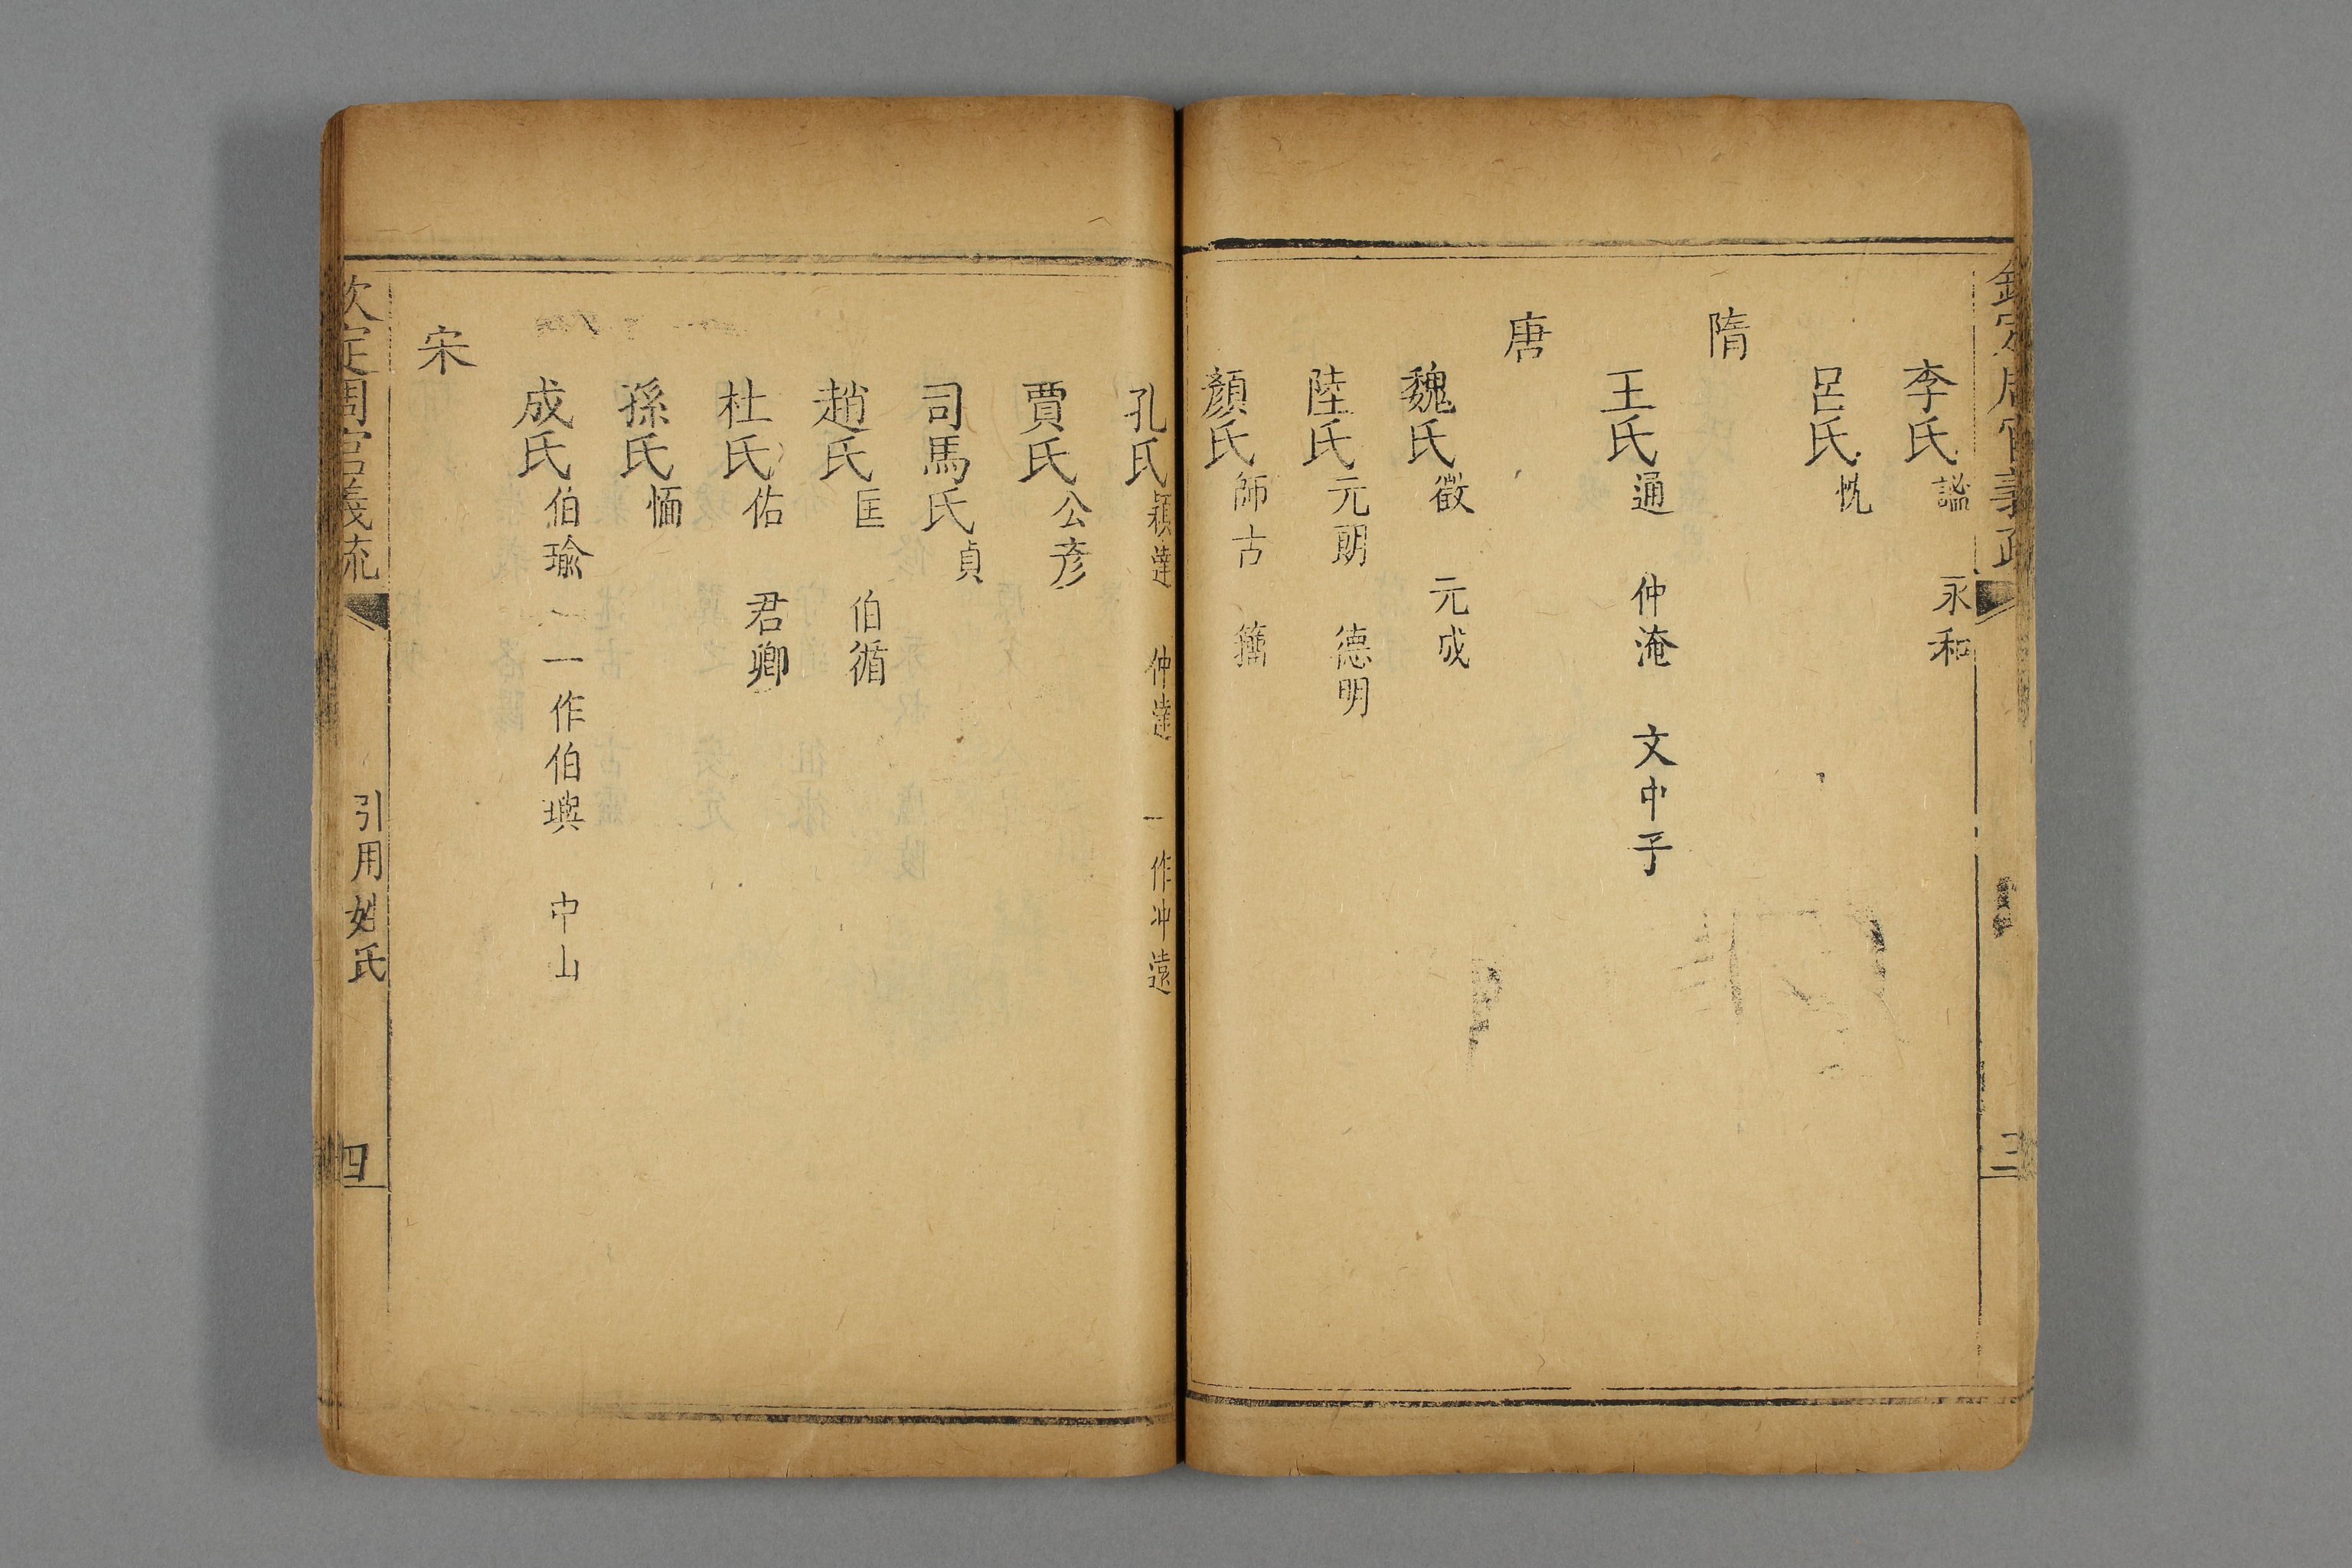 欽定周官義疏
三
李氏謐 永和
呂氏忱
隋
王氏通 仲淹 文中子
唐
魏氏徵 元成
陸氏元朗 德明
顏氏師古 籀
孔氏穎達 仲達 一作冲遠
賈氏公彥
司馬氏貞
趙氏匡 伯循
杜氏佑 君卿
孫氏愐
成氏伯瑜 一作伯璵 中山
宋
欽定周官義疏 引用姓氏 四